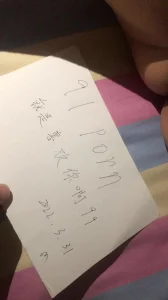 91 PORN
就是喜欢你啊99
2022.3.31